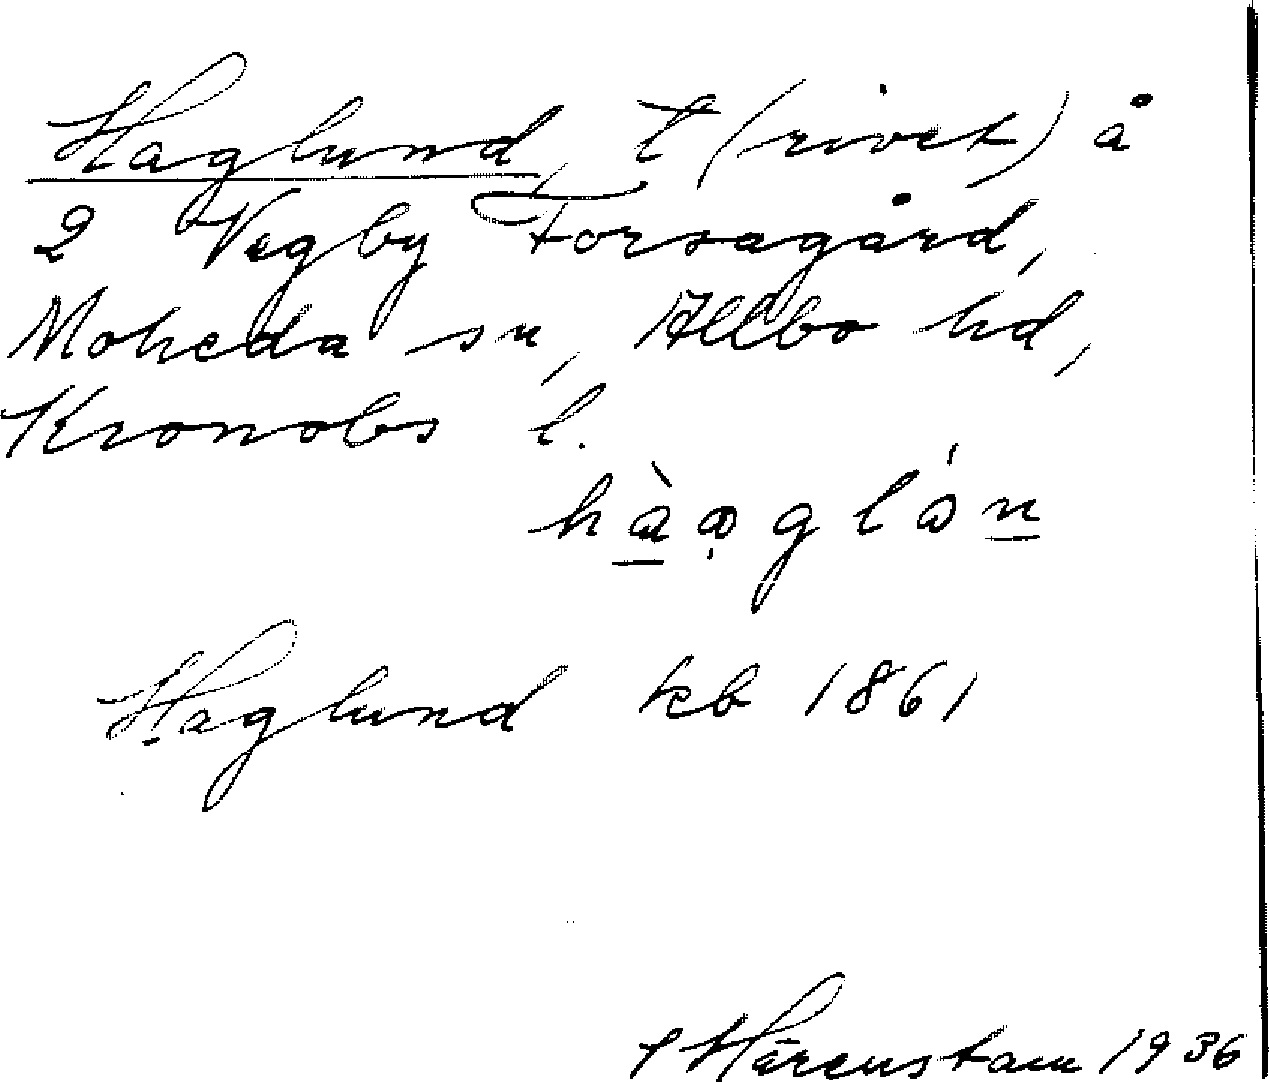 Haglund, t (rivet) å
2 Vegby Forsagård,
Moheda sn, Allbo hd,
Kronobs l.
hàa̤glón
Haglund kb 1861
Härenstam 1936